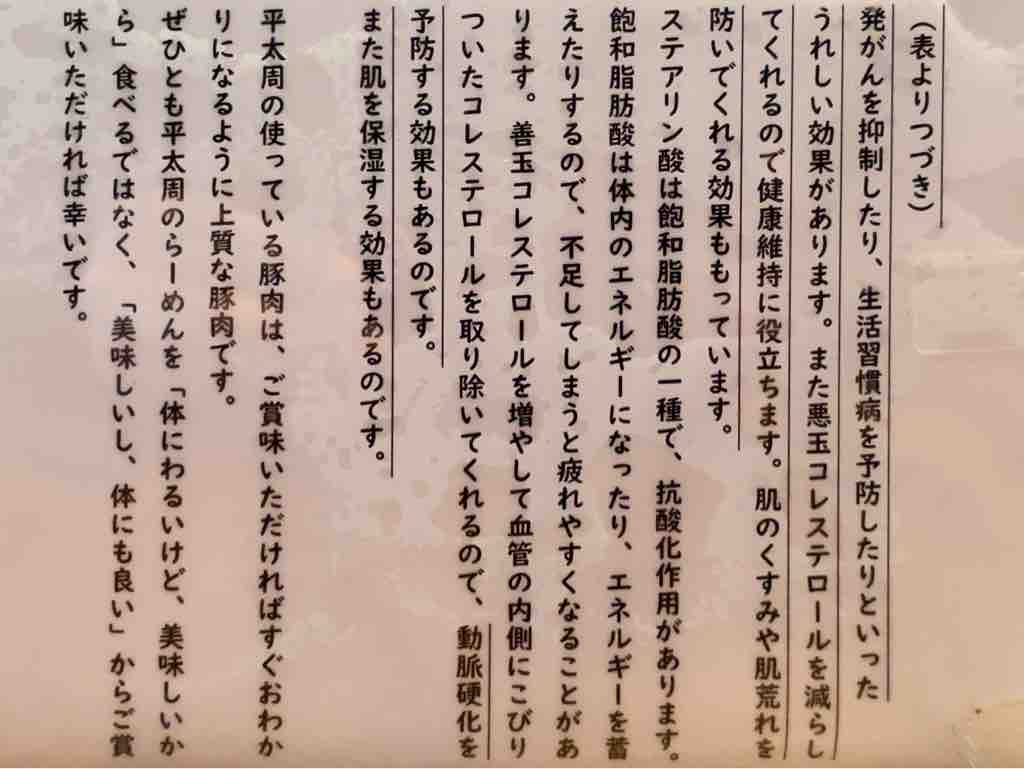 （表よりつづき）
発がんを抑制したり、生活習慣病を予防したりといった
うれしい効果があります。また悪玉コレステロールを減らし
てくれるので健康維持に役立ちます。肌のくすみや肌荒れを
防いでくれる効果ももっています。
ステアリン酸は飽和脂肪酸の一種で、抗酸化作用があります。
飽和脂肪酸は体内のエネルギーになったり、エネルギーを蓄
えたりするので、不足してしまうと疲れやすくなることがあ
ります。善玉コレステロールを増やして血管の内側にこびり
ついたコレステロールを取り除いてくれるので、動脈硬化を
予防する効果もあるのです。
また肌を保湿する効果もあるのです。
平太周の使っている豚肉は、ご賞味いただければすぐおわか
りになるように上質な豚肉です。
ぜひとも平太周のらーめんを「体にわるいけど、美味しいか
ら」食べるではなく、「美味しいし、体にも良い」からご賞
味いただければ幸いです。